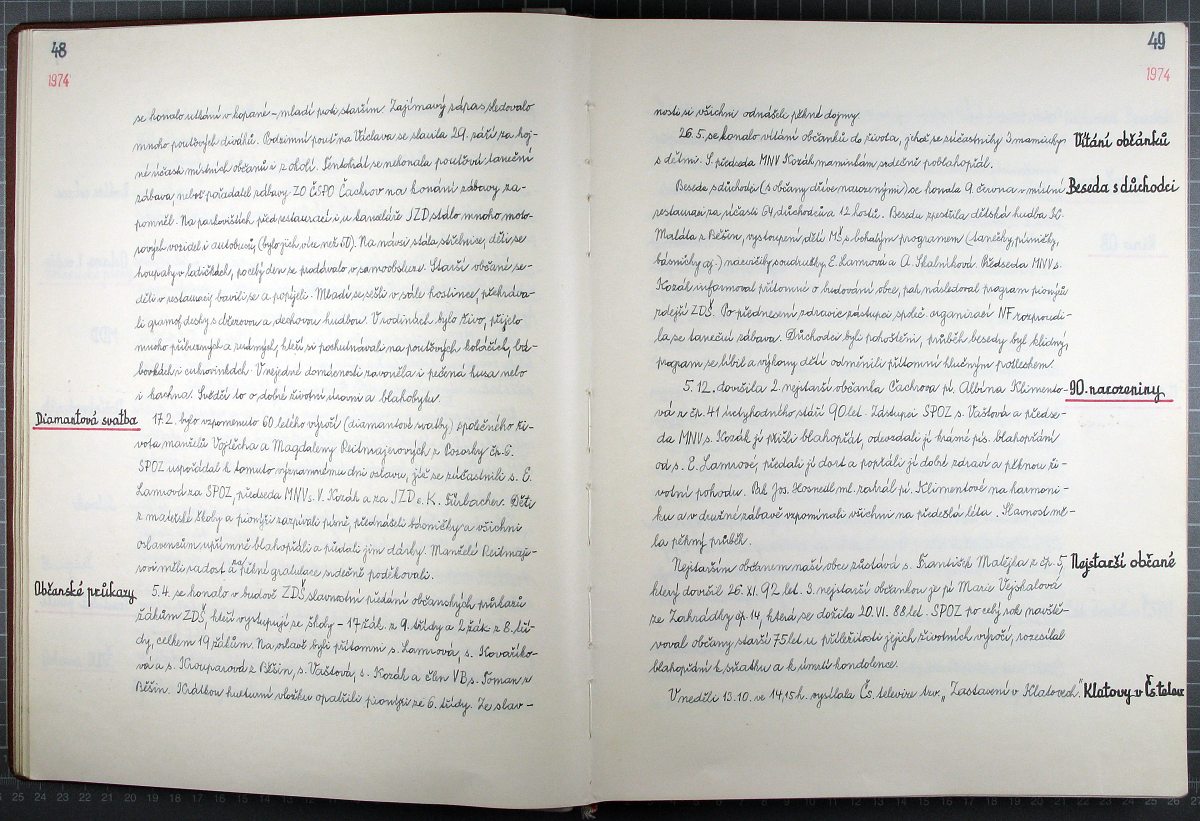 48
1974
se konalo utkání v kopané - mladí proti starším. Zajímavý zápas sledovalo
mnoho pouťových diváků. Podzimní pouť na Václava se slavila 29. září za hoj-
né účasti místních občanů i z okolí. Tentokrát se nekonala pouťová taneční
zábava, neboť pořadatel zábavy ZO ČSPO Čachrov na konání zábavy za-
pomněl. Na parkovištích, před restaurací i u kanceláře JZD stálo mnoho moto-
rových vozidel i autobusů, (bylo jich více než 50). Na návsi stála střelnice, děti se
houpaly v lodičkách, po celý den se prodávalo v samoobsluze. Starší občané se-
děli v restauraci, bavili se a popíjeli. Mladí se sešli v sále hostince, přehráva-
li gramof. desky s džezovou a dechovou hudbou. V rodinách bylo živo, přijelo
mnoho příbuzných a známých, kteří si pochutnávali na pouťových koláčích, bá-
bovkách i cukrovinkách. V nejedné domácnosti zavoněla i pečená husa nebo
i kachna. Svědčí to o dobré životní úrovni a blahobytu.
Diamantová svatba
17.2. bylo vzpomenuto 60 letého výročí (diamantové svatby) společného ži-
vota manželů Vojtěcha a Magdaleny Reitmajerových z Kozarky čp. 6.
SPOZ uspořádal k tomuto významnému dni oslavu, jíž se zúčastnili s. E.
Lamrová za SPOZ, předseda MNV s. V. Kozák a za JZD s. K. Fürbacher. Děti
z mateřské školy a pionýři zazpívali písně, přednášeli básničky a všichni
oslavencům upřímně blahopřáli a předali jim dárky. Manželé Reitmaje-
rovi měli radost a za pěkné gratulace srdečně poděkovali.
Občanské průkazy
5.4. se konalo v budově ZDŠ slavnostní předání občanských průkazů
žákům ZDŠ, kteří vystupují ze školy - 17 žák. z 9. třídy a 2 žák. z 8. tří-
dy, celkem 19 žákům. Na oslavě byli přítomni s. Lamrová, s. Kovaříko-
vá a s. Krouparová z Běšin, s. Vaštová, s. Kozák a člen VB s. Toman z
Běšin. Krátkou kulturní vložku opatřili pionýři ze 6. třídy. Ze slav-
49
1974
nosti si všichni odnášeli pěkné dojmy.
26.5. se konalo vítání občánků do života, jehož se zúčastnily 3 maminky
s dětmi. S. předseda MNV Kozák maminkám srdečně poblahopřál.
Vítání občánků
Beseda s důchodci (s občany dříve narozenými) se konala 9. června v místní
restauraci za účasti 64 důchodců a 12 hostů. Besedu zpestřila dětská hudba
Maláta z Běšin, vystoupení dětí MŠ s bohatým programem (tanečky, písničky,
básničky aj.) nacvičily soudružky E. Lamrová a A. Skalníková. Předseda MNV s.
Kozák informoval přítomné o budování obce, pak následoval program pionýrů
zdejší ZDŠ. Po přednesení zdravice zástupci společ. organizací NF rozproudi-
la se taneční zábava. Důchodci byli pohoštěni, průběh besedy byl klidný,
program se líbil a výkony dětí odměnili přítomní hlučným potleskem.
Beseda s důchodci
5.12. dovršila 2. nejstarší občanka Čachrova pí. Albína Klimento-
vá z čp. 41 úctyhodného stáří 90 let. Zástupci SPOZ s. Vaštová a předse-
da MNV s. Kozák jí přišli blahopřát, odevzdali jí krásné pís. blahopřání
od s. E. Lamrové, předali jí dort a popřáli jí dobré zdraví a pěknou ži-
votní pohodu. Jos. Hosnedl ml. zahrál pí. Klimentové na harmoni-
ku a v družné zábavě vzpomínali všichni na předešlá léta. Slavnost mě-
la pěkný průběh.
90. narozeniny
Nejstarším občanem naší obce zůstává s. František Matějka z čp. 5,
který dovršil 26. XI. 92 let. 3. nejstarší občankou je pí Marie Vejskalová
ze Zahrádky čp. 14, která se dožila 20. VI. 88 let. SPOZ po celý rok navště-
voval občany starší 75 let u příležitosti jejich životních výročí, rozesílal
blahopřání k sňatku a k úmrtí kondolence.
Nejstarší občané
V neděli 13.10. ve 14,15 h. vysílala Čs. televize tzv. „Zastavení v Klatovech."
Klatovy v Čs. telev.